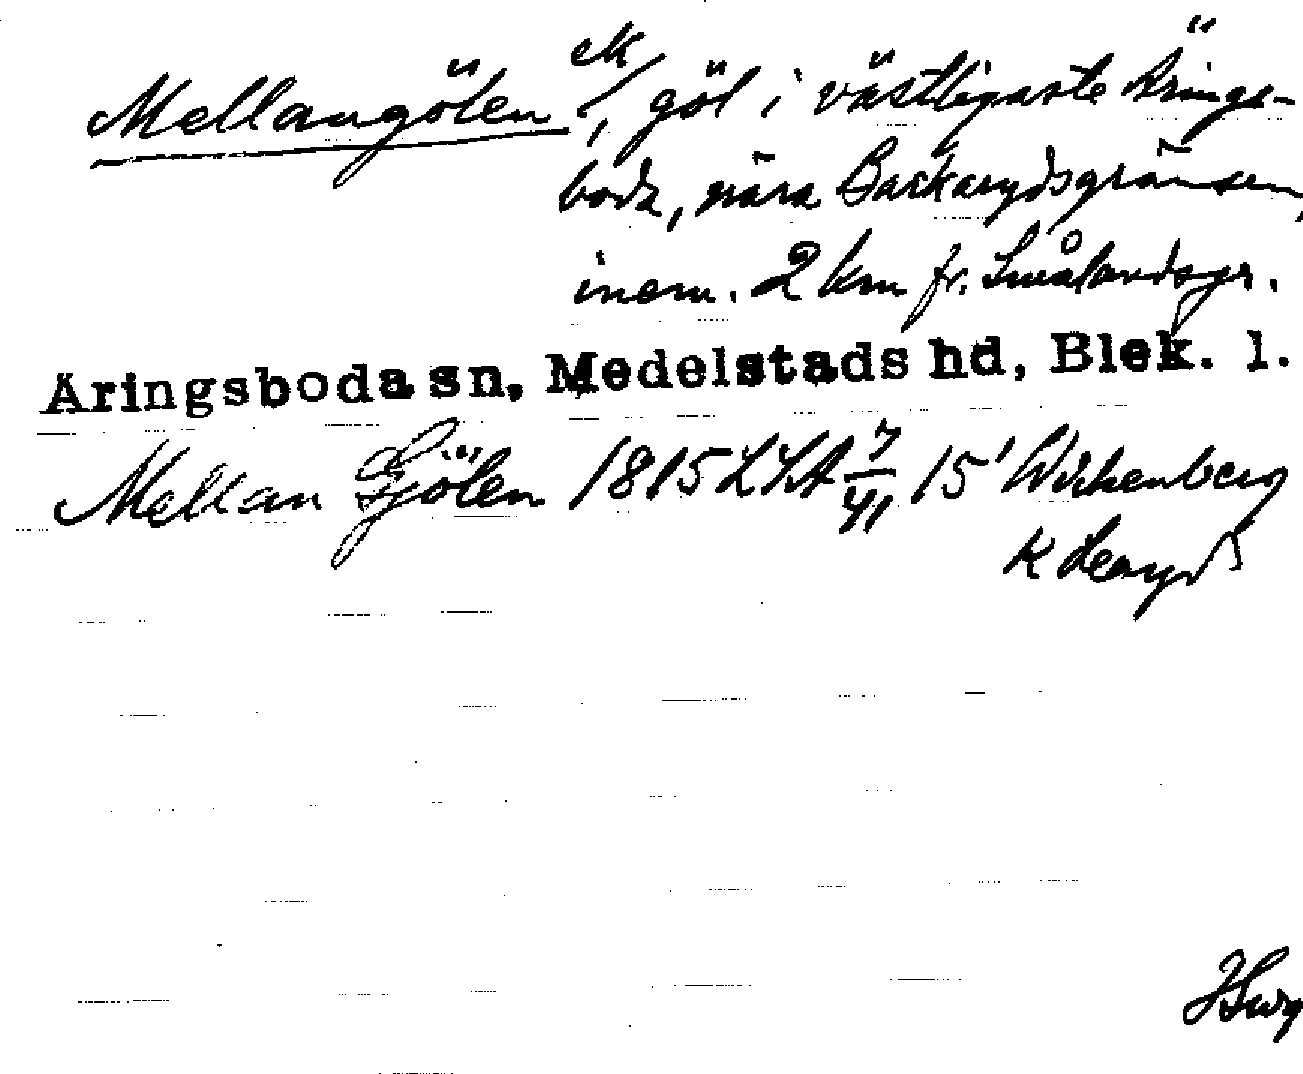 Mellangölen ek/, göl i västligaste Ärings-
boda, nära Backarydsgränsen,
inom. 2 km fr. Smålandsgr.
Äringsboda sn, Medelstads hd, Blek. l.
Mellan Gjölen 1815 LSA 7/41 15' Wirkenberg
K